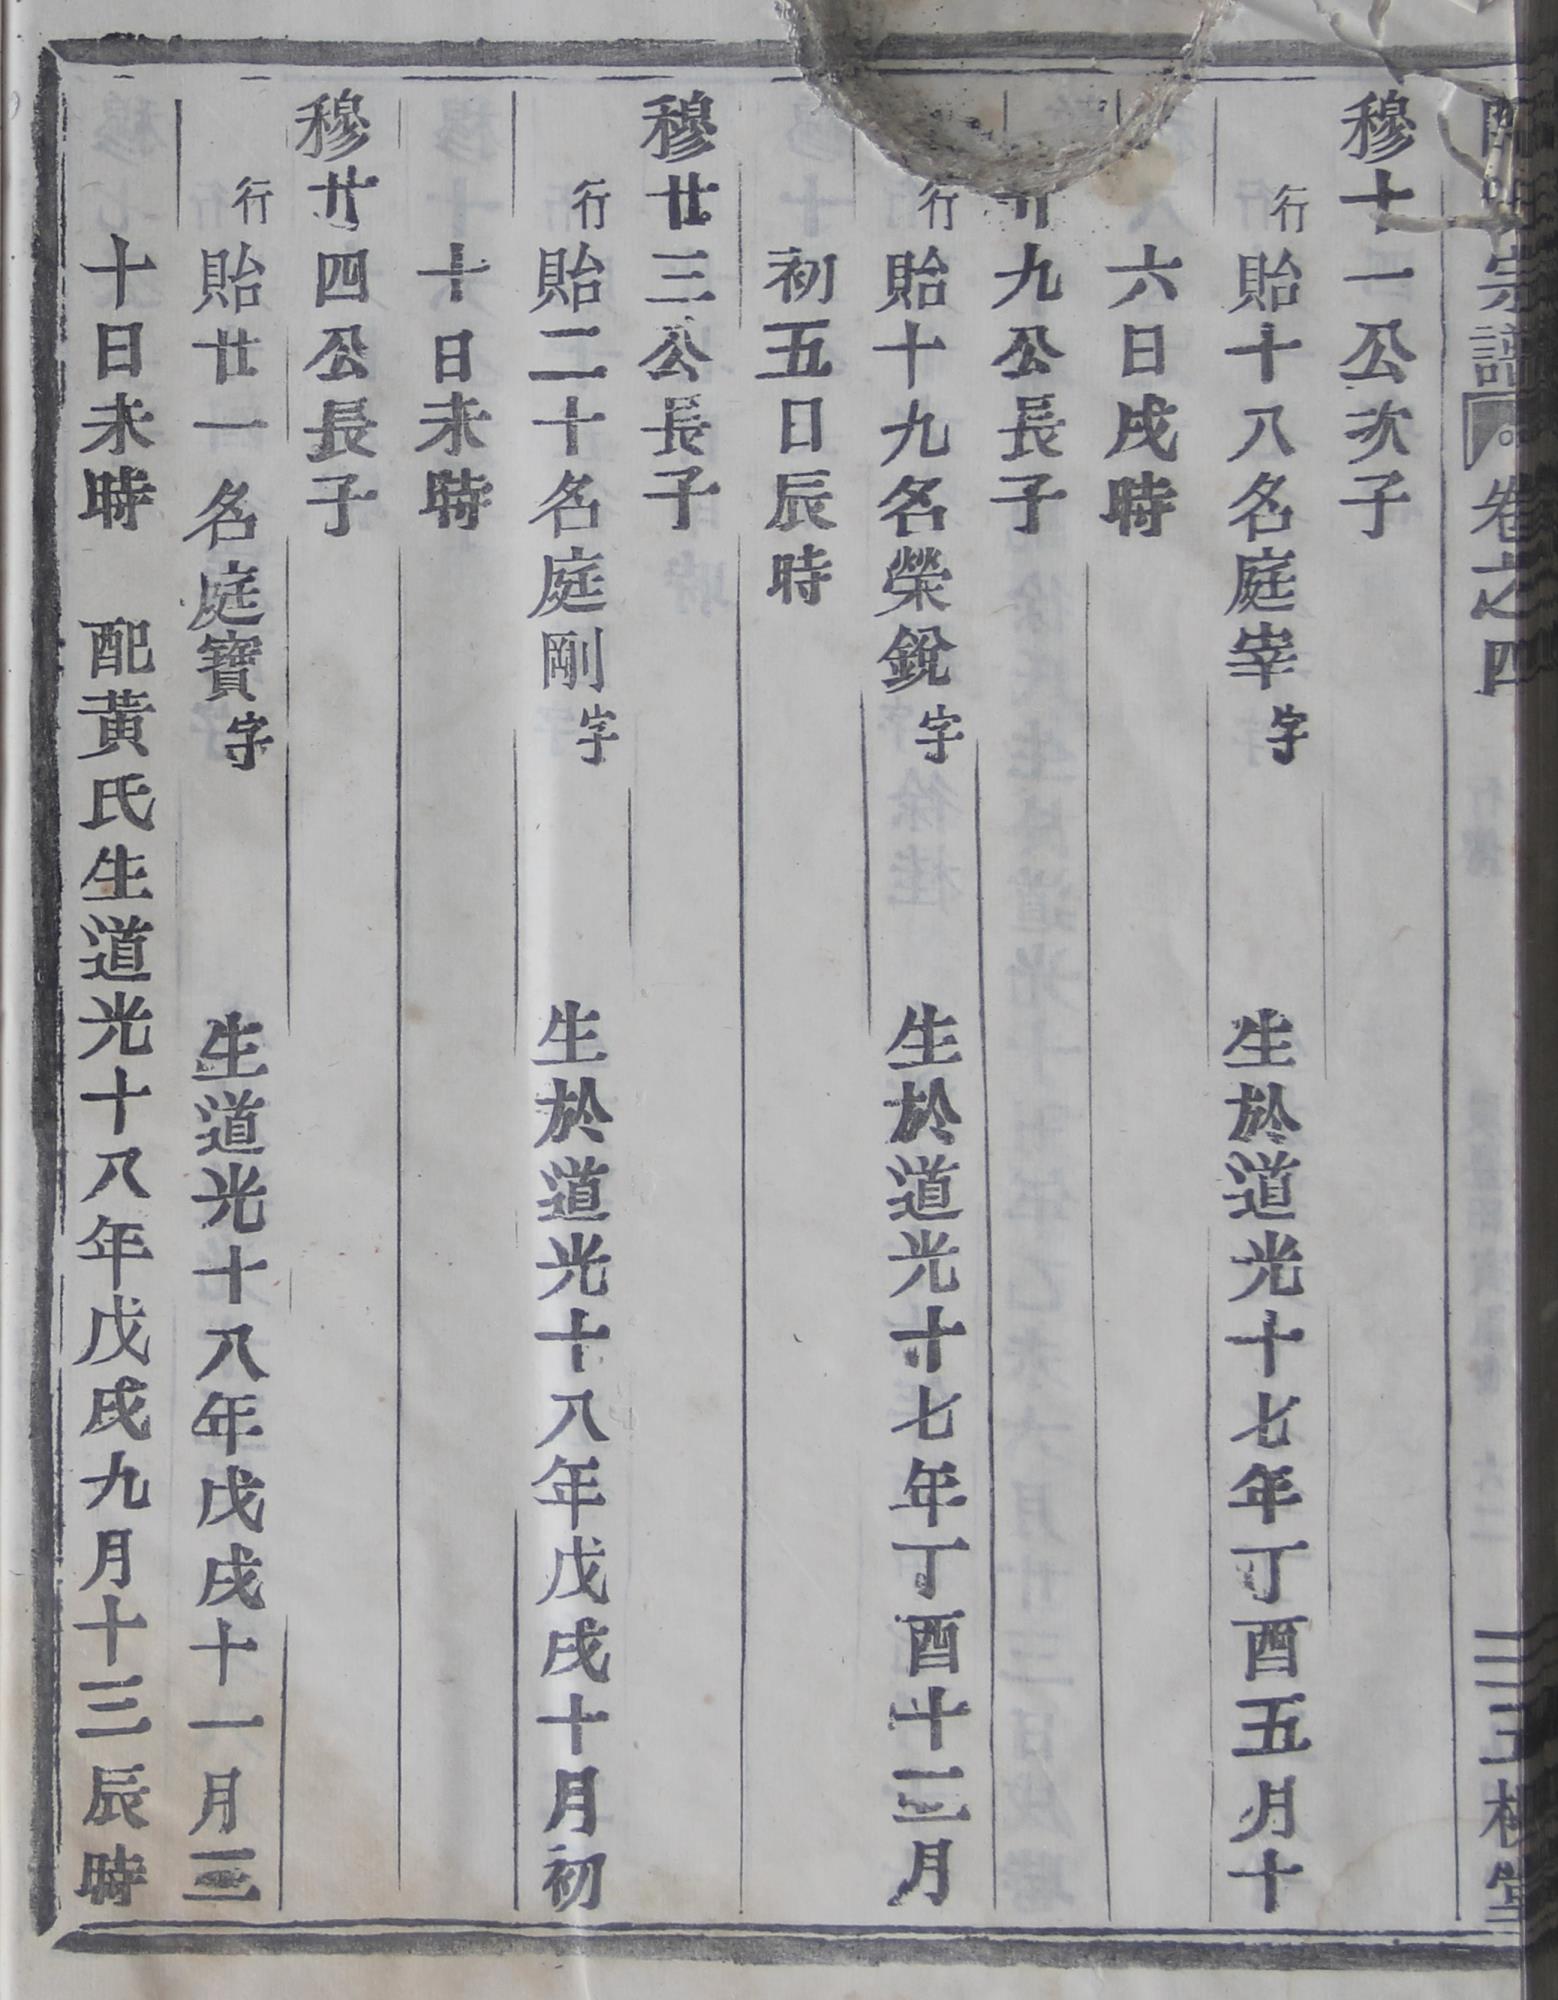 宗譜 卷之四 三五 堂
穆十一公次子
行貽十八名庭宰字 生於道光十七年丁酉五月十
六日戌時
九公長子
行貽十九名榮銳字 生於道光十七年丁酉十二月
初五日辰時
穆廿三公長子
行貽二十名庭剛字 生於道光十八年戊戌十月初
十日未時
穆廿四公長子
行貽廿一名庭寶字 生道光十八年戊戌十一月三
十日未時 配黃氏生道光十八年戊戌九月十三辰時